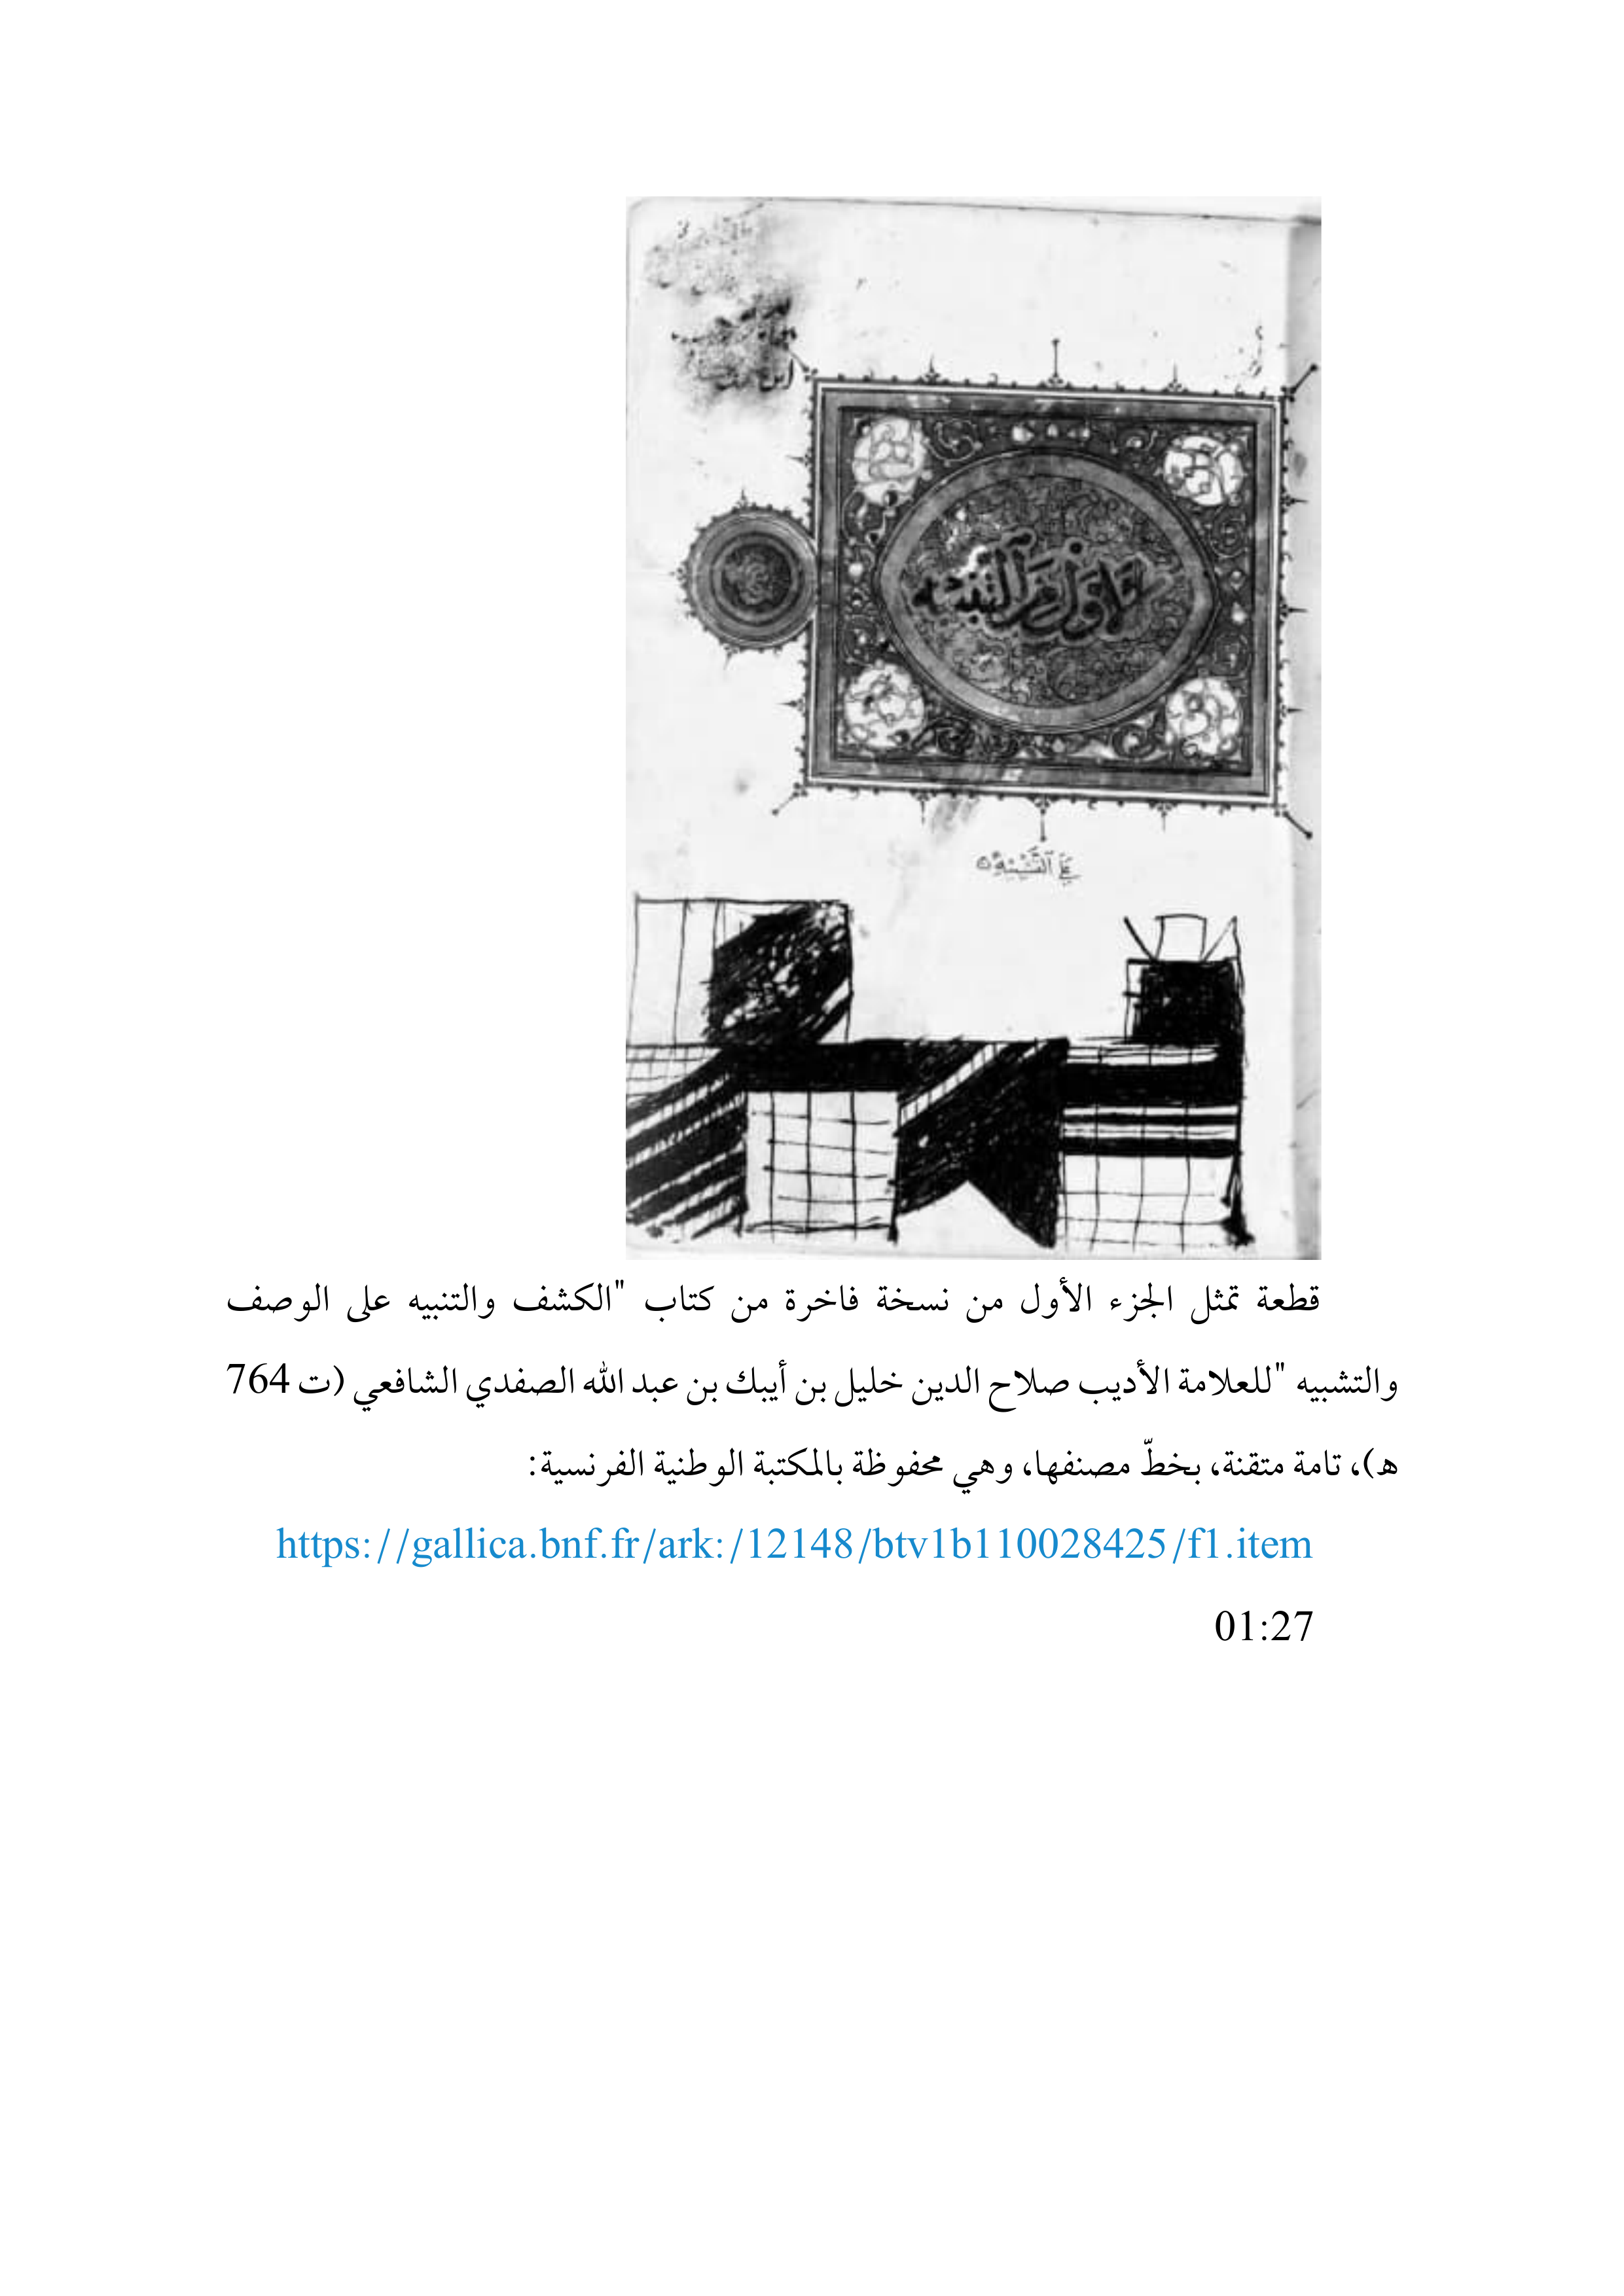 على التنبيه
قطعة تمثل الجزء الأول من نسخة فاخرة من كتاب "الكشف والتنبيه على الوصف
والتشبيه "للعلامة الأديب صلاح الدين خليل بن أيبك بن عبد الله الصفدي الشافعي (ت 764
ه)، تامة متقنة، بخطّ مصنفها، وهي محفوظة بالمكتبة الوطنية الفرنسية:
https://gallica.bnf.fr/ark:/12148/btv1b110028425/f1.item
01:27